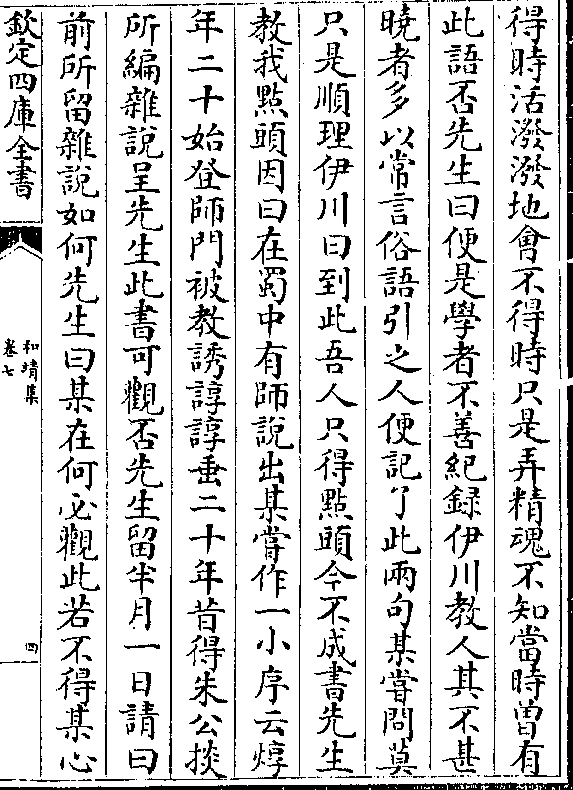 得時活潑潑地會不得時只是弄精魂不知當時曽有
此語否先生曰便是學者不善紀録伊川教人其不甚
曉者多以常言俗語引之人便記了此兩句某嘗問莫
只是順理伊川曰到此吾人只得㸃頭今不成書先生
教我㸃頭因曰在蜀中有師說出某嘗作一小序云焞
年二十始登師門被教誘諄諄垂二十年昔得朱公掞
所編雜說呈先生此書可觀否先生留半月一日請曰
前所留雜說如何先生曰某在何必觀此若不得某心
欽定四庫全書
和靖集
卷七
四